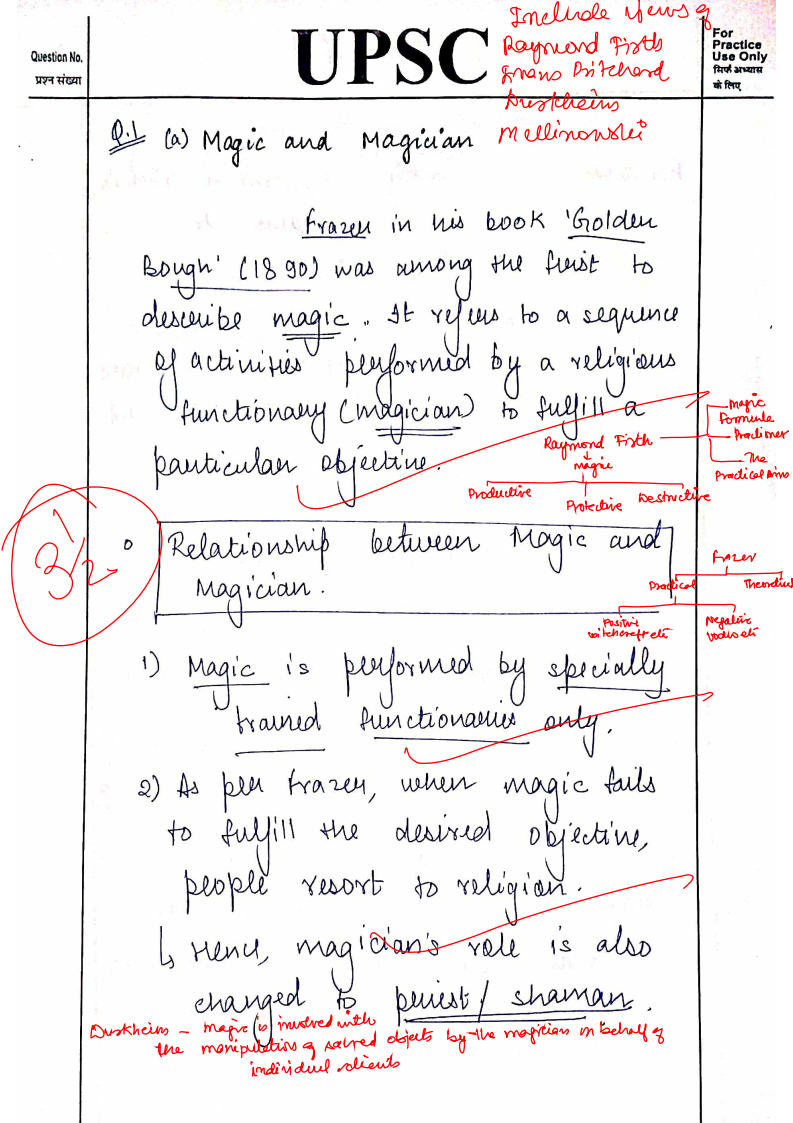 Question No.
प्रश्न संख्या
UPSC
For
Practice
Use Only
सिर्फ अभ्यास
के लिए
Include views of
Raymond Firth
Evans Pritchard
Durkheim
Mellinowski
Q.1 (a) Magic and Magician
Frazer in his book 'Golden
Bough' (1890) was among the first to
describe magic. It refers to a sequence
of activities performed by a religious
functionary (magician) to fulfill a
particular objective.
Raymond Firth
Magic
Formula
Practioner
The
Practical Aims
magic
Productive
Protective
Destructive
3 1/2
Relationship between Magic and
Magician.
Frazer
Practical
Theoretical
Positive
witchcraft etc
Negative
vodus etc
1) Magic is performed by specially
trained functionaries only.
2) As per Frazer, when magic fails
to fulfill the desired objective,
people resort to religion.
↳ Hence, magician's role is also
changed to priest / shaman.
Durkheim - magic is involved with
the manipulation of sacred objects by the magician on behalf of
individual clients